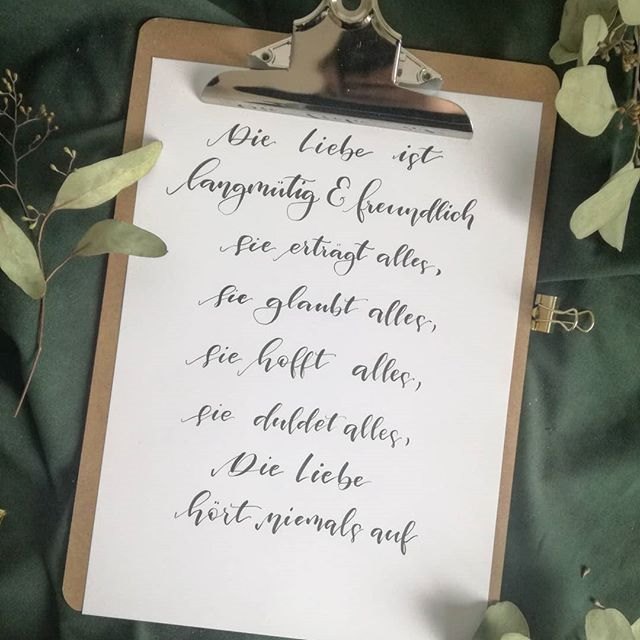 Die Liebe ist
langmütig & freundlich
sie erträgt alles,
sie glaubt alles,
sie hofft alles,
sie duldet alles,
Die Liebe
hört niemals auf